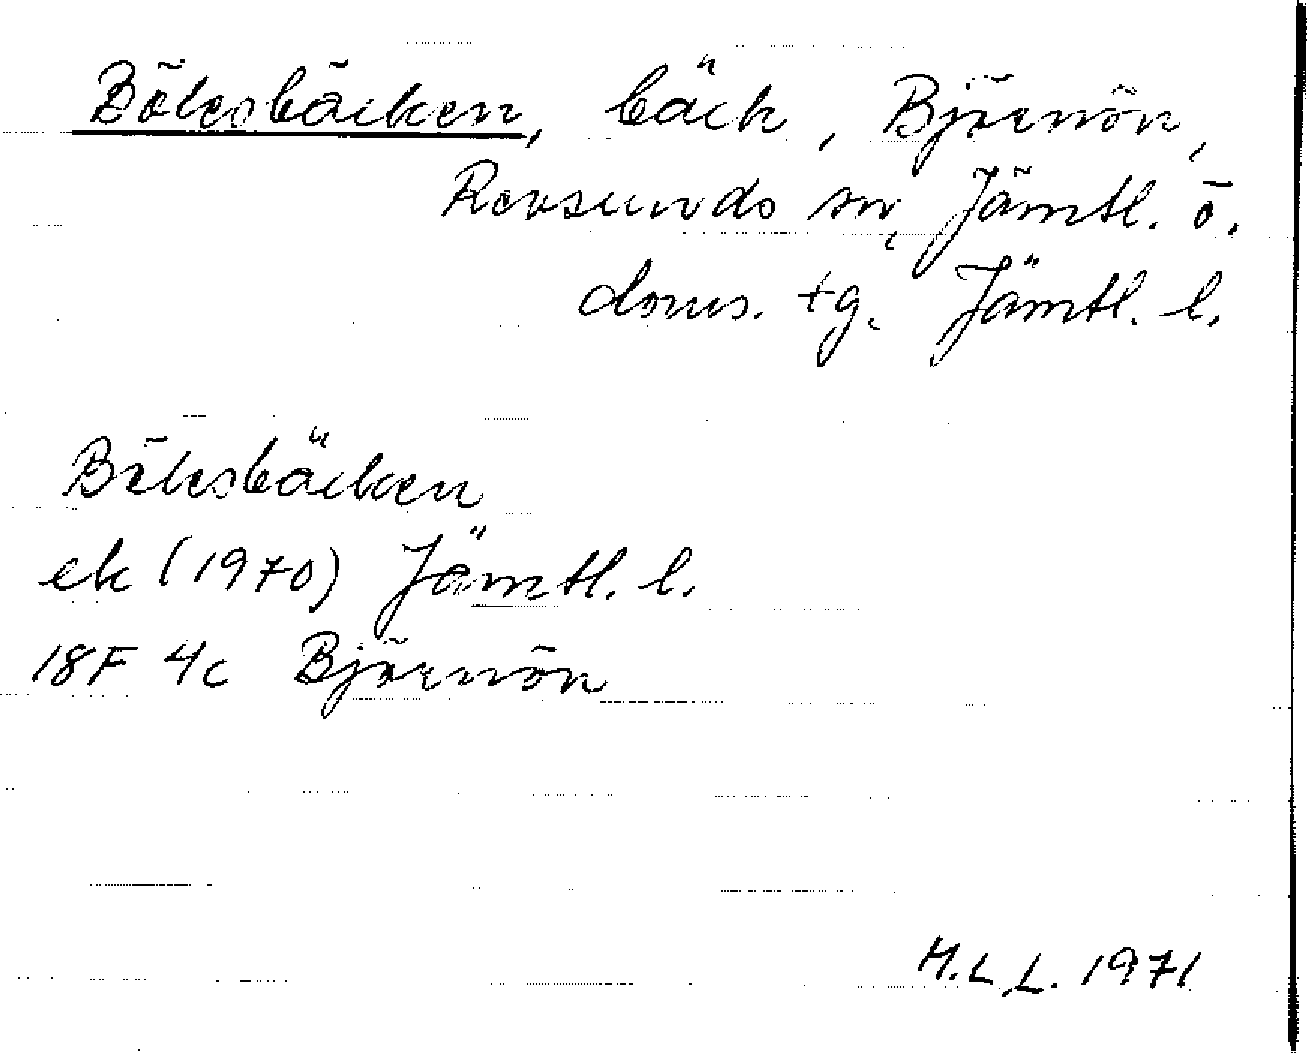 Bölesbäcken, bäck, Björnön,
Revsunds sn, Jämtl. ö.
doms. tg. Jämtl. l.
Bölesbäcken
ek (1970) Jämtl. l.
18F 4c Björnön
H.L.L. 1971